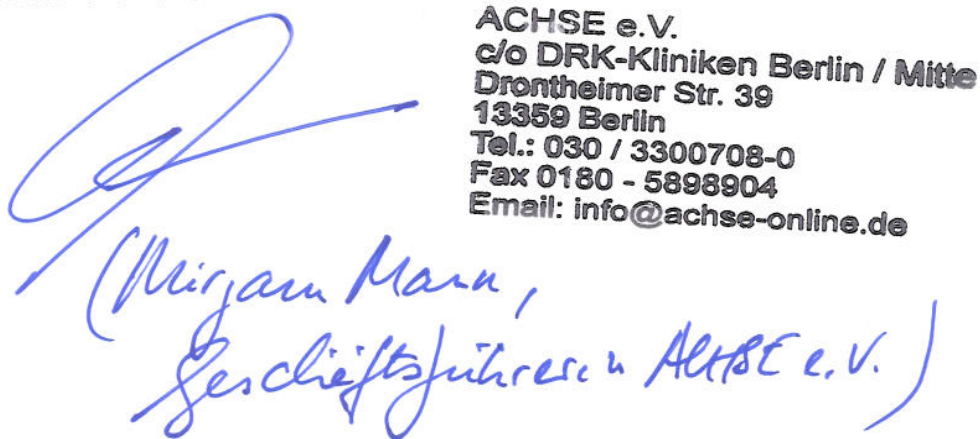 ACHSE e.V.
c/o DRK-Kliniken Berlin / Mitte
Drontheimer Str. 39
13359 Berlin
Tel.: 030 / 3300708-0
Fax 0180 - 5898904
Email: info@achse-online.de
(Mirjam Mann,
Geschäftsführerin ACHSE e.V.)